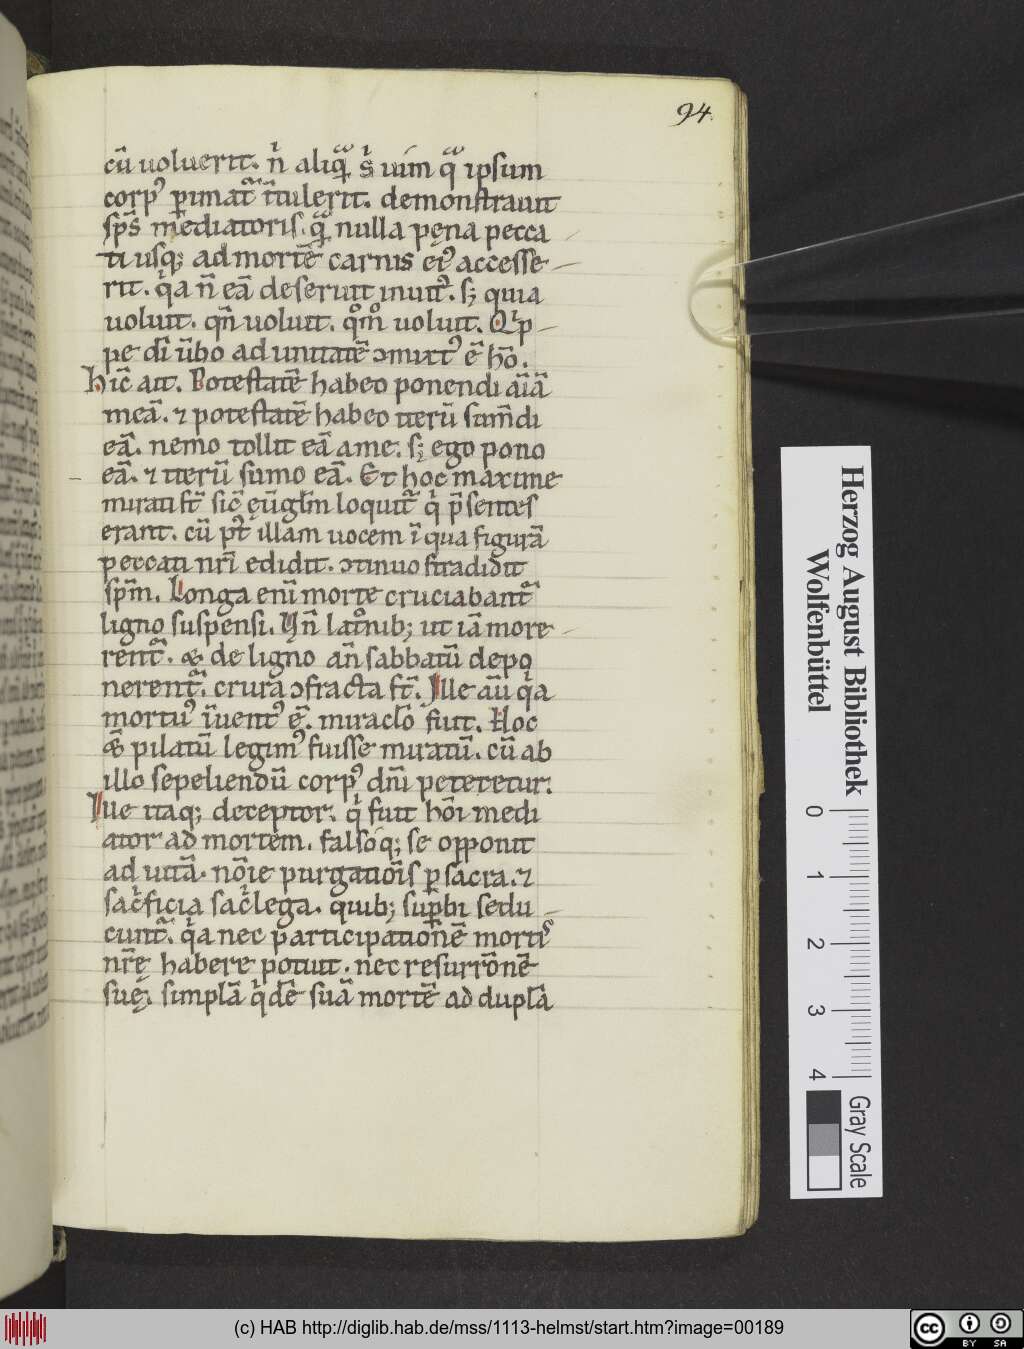 94.
cū uoluerit. ñ aliq̄ s̄ uim q̄ ipsum
corp᾽ ꝑimat᷑ ītulerit. demonstrauit
sp̄s mediatoris. q̄ nulla pęna pecca
ti usq; ad mortē carnis ei᾽ accesse
rit. q̇a ñ eā deseruit inuit᾽. s; quia
uoluit. qn̄ uoluit. qͦmͦ uoluit. Qip
pe dī ūbo ad unitatē ↄmixt᾽ ē hō.
Hic̄ ait. Potestatē habeo ponendi aīā
meā. ⁊ potestatē habeo iterū sum̄di
eā. nemo tollit eā a me. s; ego pono
eā. ⁊ iterū sumo eā. Et hoc maxime
mirati st̄ sic̄ ęūglm̄ loquit᷑ q̇ p̄sentes
erant. cū pꝰt illam uocem ī qua figurā
peccati nr̄i edidit. ↄtinuo tradidit
sp̄m. Longa eni morte cruciabant᷑
ligno suspensi. Vn̄ latͦnib; ut iā more
rent᷑. & de ligno an̄ sabbatū depo
nerent᷑. crura ↄfracta st̄. Ille aū q̇a
mortu᾽ īuent᾽ ē. miraclo̅ fuit. Hoc
& pilatū legim᾽ fuisse miratū. cū ab
illo sepeliendū corp᾽ dn̄i peteretur.
Ille itaq; deceptor. q̇ fuit hōi medi
ator ad mortem. falsoq; se opponit
ad uitā. nōie purgatiōis ꝑ sacra. ⁊
sac̊ficia sac̊lega. quib; suꝑbi sedu
cunt᷑. q̇a nec participationē morti᾽
nr̄ę habere potuit. nec resurrōnē
suę. simplā q̇dē suā mortē ad duplā
Herzog August Bibliothek
Wolfenbüttel
0 1 2 3 4
Gray Scale
(c) HAB http://diglib.hab.de/mss/1113-helmst/start.htm?image=00189
cc BY SA